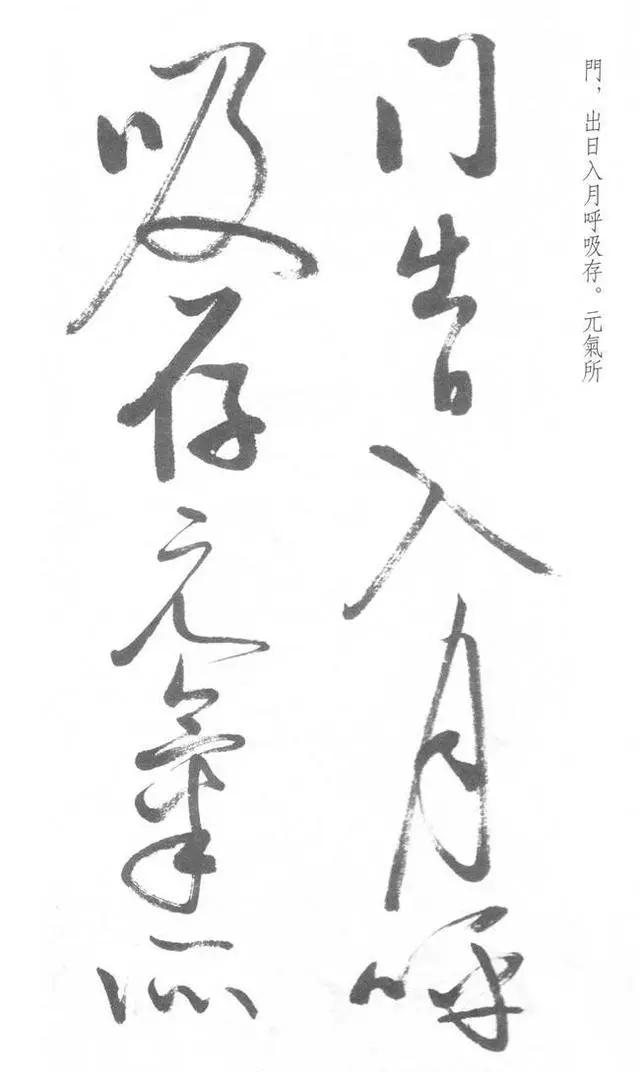 門，出日入月呼吸存。元氣所
門出日入月呼
吸存元氣所